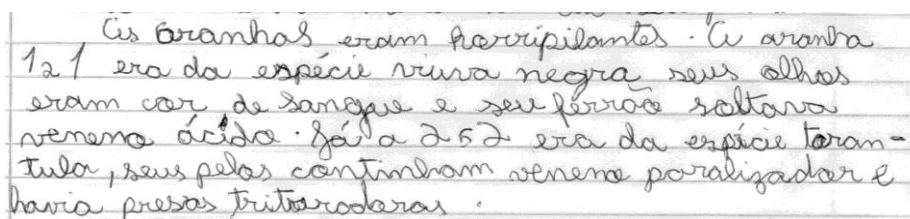 As aranhas eram horripilantes. A aranha
121 era da espécie viuva negra seus olhos
eram cor de sangue e seu férrão soltava
veneno ácido. Já a 252 era da espécie taran-
tula, seus pelos continham veneno paralizador e
havia presas trituradoras.